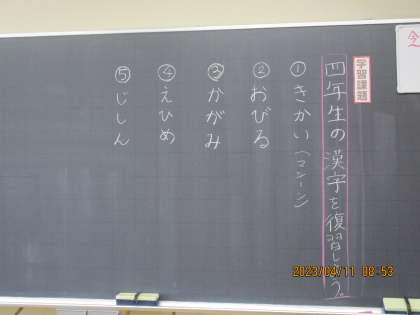 学習課題
四年生の漢字を復習しよう。
①きかい（マシーン）
②おびる
③かがみ
④えひめ
⑤じしん
2023/04/11 08:53